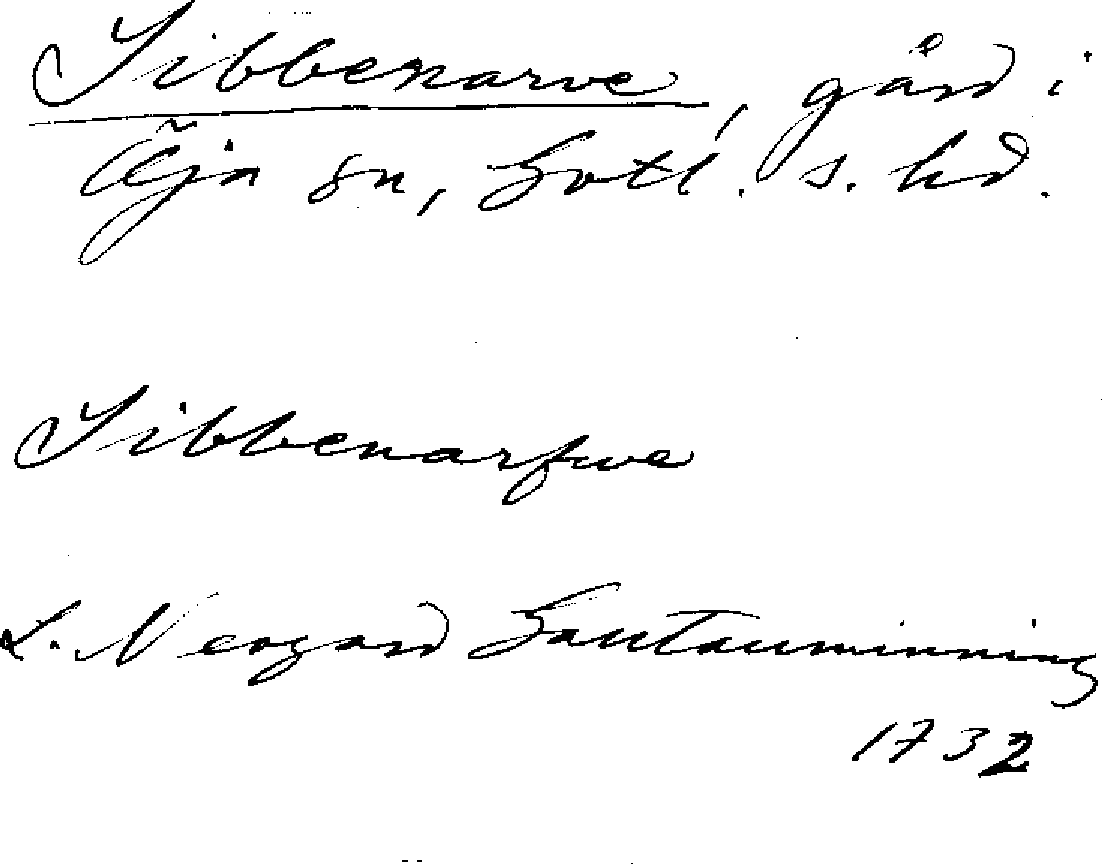 Sibbenarve, gård i
Öja sn, Gotl. s. hd.
Sibbenarfwe
L. Neogard Gautauminning
1732